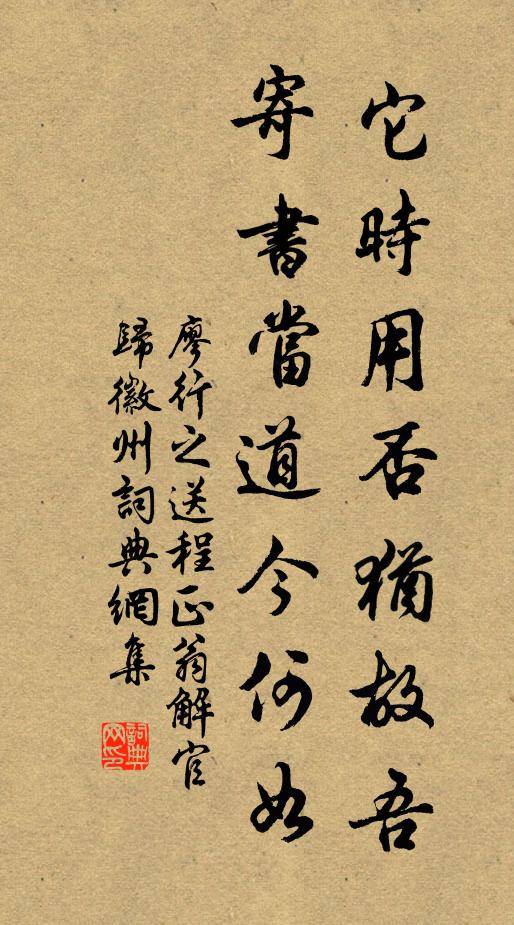 它時用否猶故吾
寄書當道今何如
廖行之送程正翁解官
歸徽州詞典網集
詞典网印